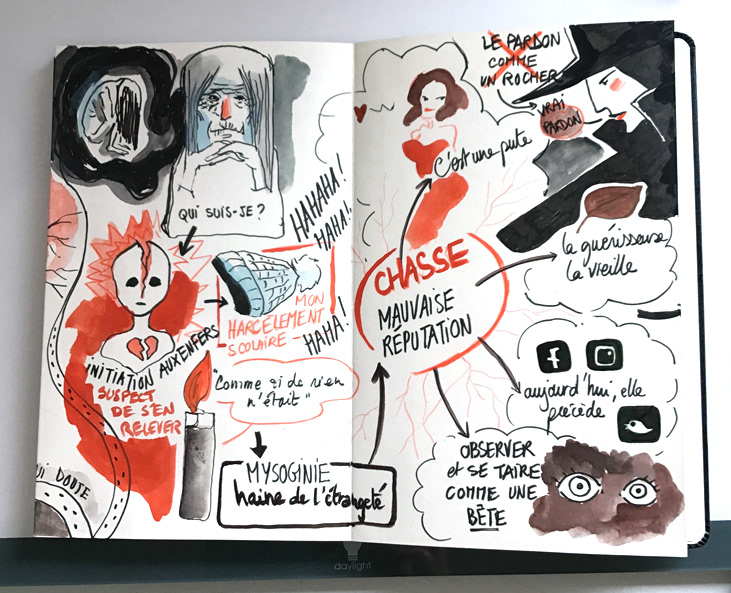 QUI SUIS-JE ?
HAHAHA !
HAHA !
HAHA !
MON
HARCÈLEMENT
SCOLAIRE
INITIATION AUX ENFERS
SUSPECT
DE S'EN
RELEVER
"Comme si de rien
n'était"
DOUTE
MYSOGINIE
haine de l'étrangeté
LE PARDON
COMME
UN ROCHER
VRAI
PARDON
C'est une pute
CHASSE
MAUVAISE
RÉPUTATION
la guérisseuse
la vieille
f
aujourd'hui, elle
précède
OBSERVER
et SE TAIRE
COMME UNE
BÊTE
daylight